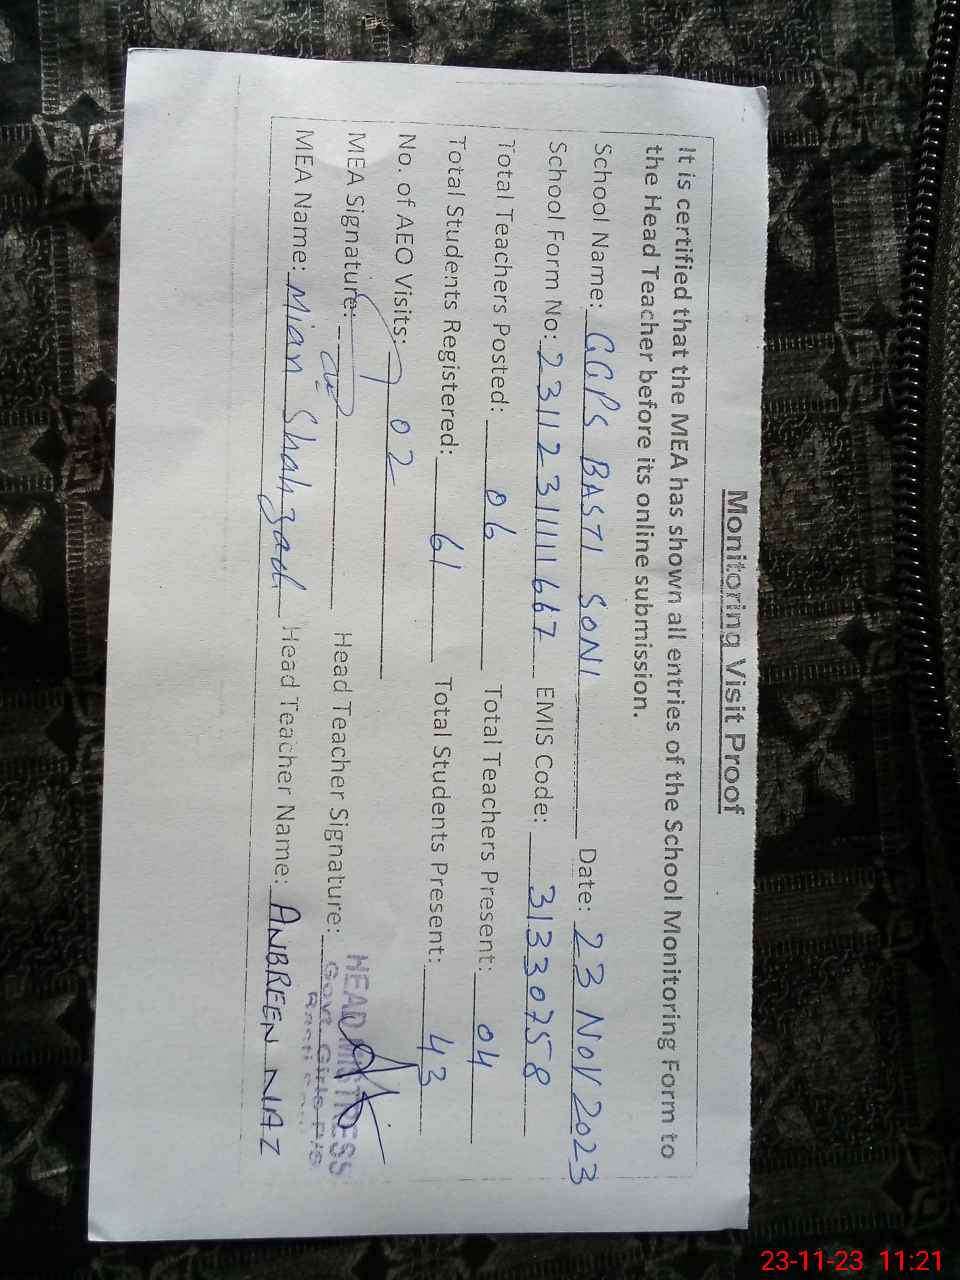 Monitoring Visit Proof
It is certified that the MEA has shown all entries of the School Monitoring Form to
the Head Teacher before its online submission.
School Name: GGPS BASTI SONI Date: 23 NOV 2023
School Form No: 23112311111667 EMIS Code: 31330758
Total Teachers Posted: 06 Total Teachers Present: 04
Total Students Registered: 61 Total Students Present: 43
No. of AEO Visits: 02
MEA Signature: Head Teacher Signature: HEAD MISTRESS
Govt. Girls P/S
Basti
MEA Name: Mian Shahzad Head Teacher Name: ANBREEN NIAZ
23-11-23 11:21